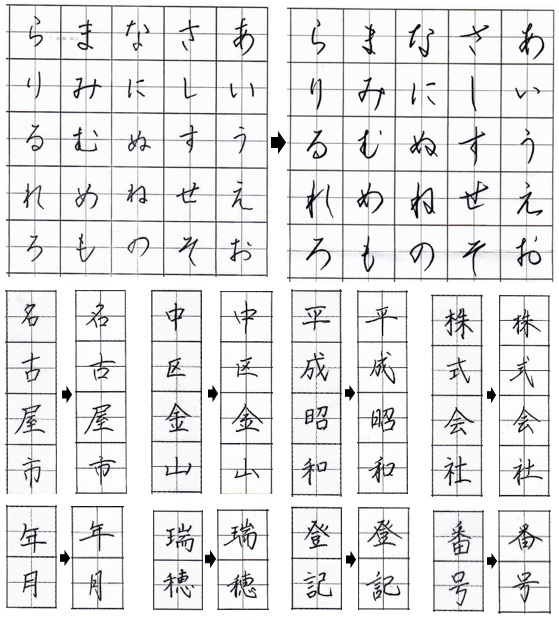 あいうえお
さしすせそ
なにぬねの
まみむめも
らりるれろ
あいうえお
さしすせそ
なにぬねの
まみむめも
らりるれろ
名古屋市
名古屋市
中区金山
中区金山
平成昭和
平成昭和
株式会社
株式会社
年月
年月
瑞穂
瑞穂
登記
登記
番号
番号